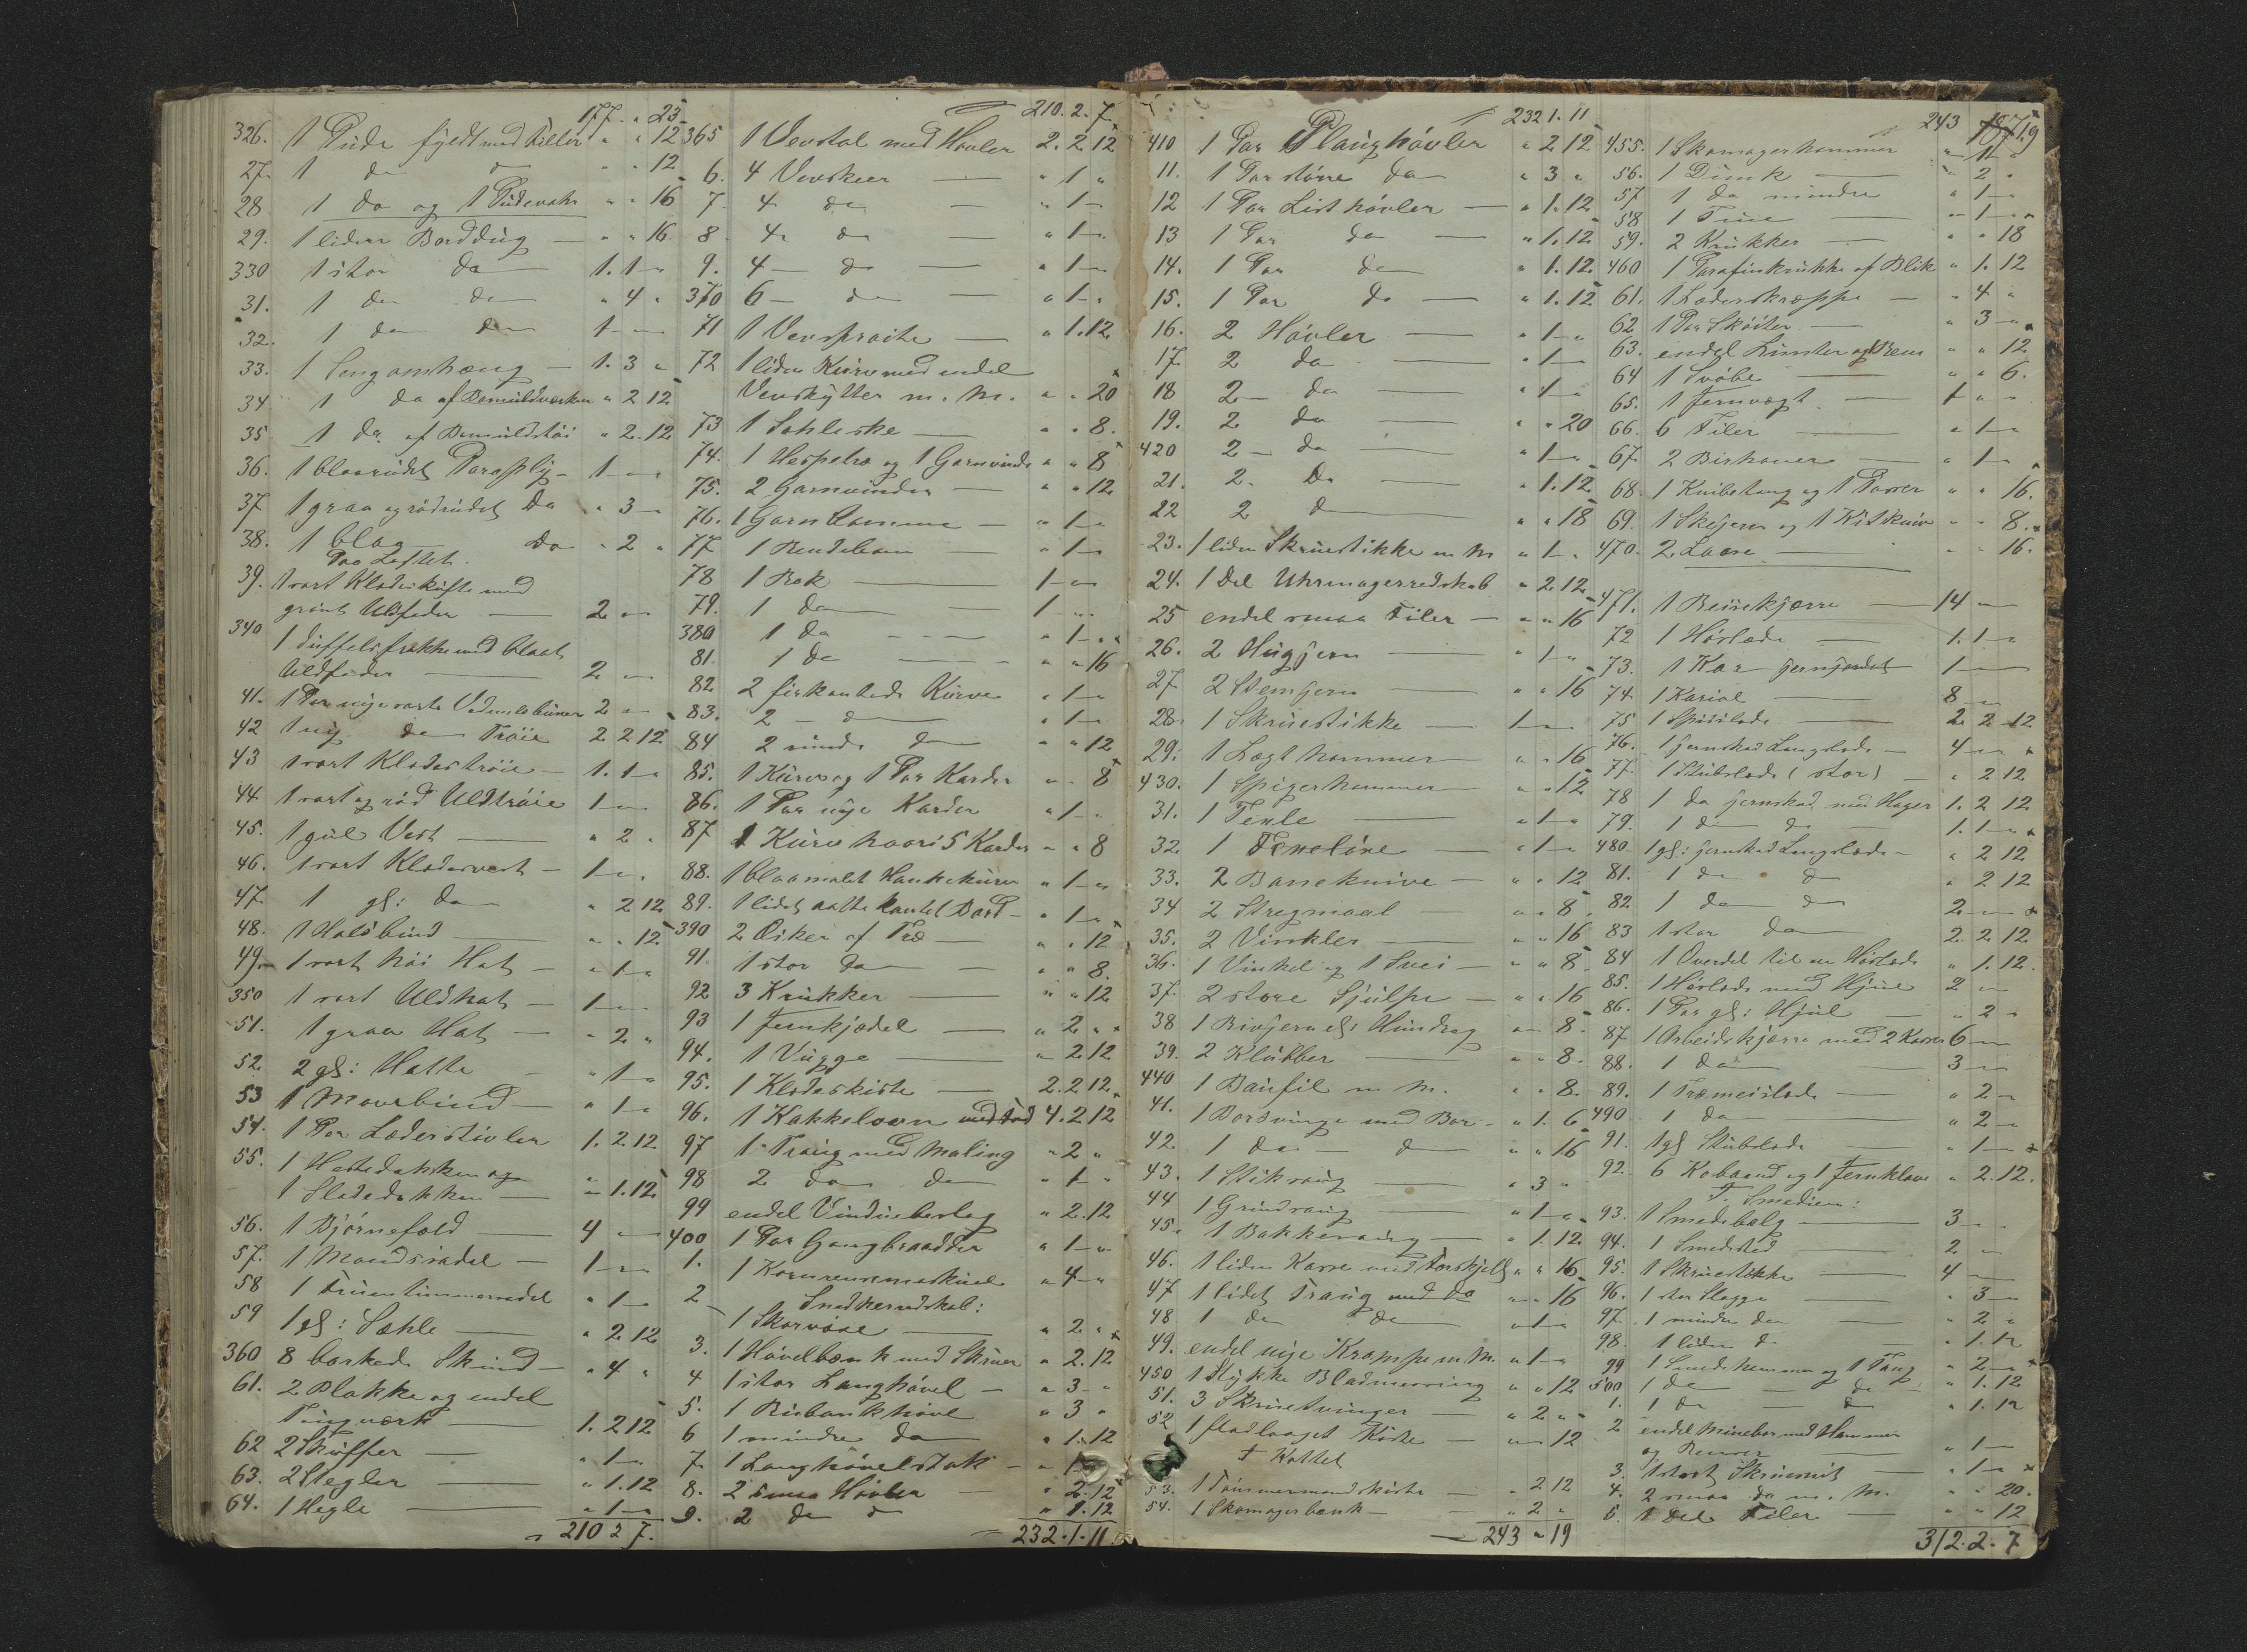 177 " 23
326. 1 Pude fyldt med Filler " " 12
27. 1 do do " " 12
28 1 do og 1 Pudevahr " " 16
29. 1 liden Borddug — " " 16
330 1 stor do 1. 1 "
31. 1 do do " 4 "
32. 1 do do 1 — "
33. 1 Sengomhæng — 1. 3 "
34 1 do af Bomuldverken " 2 12
35 1 do af Bomuldstøi " 2. 12
36. 1 blaarudet Paraply — 1 — "
37 1 graa og rødrudet do " 3 —
38. 1 blaa do " 2 "
Paa Loftet.
39. 1 sort Klædeskufte med
grønt Uldfoder — 2 — "
340 1 Duffelsfrakke med blaat
Uldfoder — 2 — "
41. 1 Par nye sorte Vadmelsbuxer 2 — "
42 1 ny do Trøie 2 2 12
43 1 sort Klædestrøie — 1. 1 "
44 1 sort og rød Uldtrøie 1 — "
45. 1 gul Vest — " 2 "
46. 1 sort Klædesvest — 1 — "
47. 1 gl: do " 2 12
48. 1 Halsbind — " " 12
49. 1 sort høi Hat — " 1 "
350 1 sort Uldhat — 1 — "
51. 1 graa Hat — " 2 "
52. 2 gl: Hatte — " 1 "
53 1 Mavebind — " 1 "
54. 1 Par Læderstøvler 1. 2 12
55. 1 Hestedækken og
1 Slededækken — " 1. 12
56. 1 Bjørnefæld — 4 — "
57. 1 Mandssadel — 1 — "
58 1 Fruentimmersadel " 1 —
59 1 gl: Sæhle — " 2 12
360 8 barkede Skind — " 4 "
61. 2 Blokke og endel
Tougværk — 1. 2 12
62 2 Skuffer — " 1 "
63. 2 Hegler — " 1. 12
64. 1 Hegle — " 1 "
210 2 7.
210. 2. 7
365 1 Vevstol med Hovler 2. 2 12
6. 4 Vevskeer — " 1 "
7. 4 do — " 1 "
8 4 do — " 1 "
9. 4 — do — " 1 "
370 6 — do — " 1 "
71 1 Vevsproite — " 1. 12
72 1 liden Kurv med endel
Vevskytter m. M. " " 20
73 1 Sahleske — " " 8.
74. 1 Hespetræ og 1 Garnvinde " " 8
75. 2 Garnvinder — " " 12
76. 1 Garnkomme — " 1 "
77 1 Rendebom — " 1 "
78 1 Rok — 1 — "
79. 1 do — 1 — "
380 1 do — " 1 "
81. 1 do — " " 16
82 2 firkantede Kurve " 1 "
83. 2 — do " 1 "
84 2 runde do " " 12
85. 1 Kurv og 1 Par Karder " " 8
86. 1 Par nye Karder " 1 "
87 1 Kurv hvori 5 Karder " " 8
88. 1 blaamalet Hankekurv " 1 "
89. 1 lidet aatte kantet Bord — " 1 "
390 2 Øsker af Træ — " " 12
91. 1 stor do — " " 8.
92 3 Krukker " " 12
93 1 Jernkjedel — " 2 "
94. 1 Vugge — " 2 12
95. 1 Klædeskiste — 2. 2 12
96. 1 Kakkelovn med Fod 4. 2 12
97 1 Traug med Maling " 2 "
98 2 do do " 1 "
99 endel Vinduebeslag " 2. 12
400 1 Par Gangbraadder " 1 "
1. 1 Kornrensemaskine " 4 "
Snedkerredskab:
2 1 Skarvøxe — " 2 "
3. 1 Høvelbænk med Skruer " 2. 12
4 1 stor Langhøvel — " 3 "
5. 1 Rubankhøvl " 3 "
6 1 mindre do — " 1. 12
7. 1 Langhøvelstok — " 1
8. 2 smaa Høvler — " 2. 12
9. 2 do do " 1. 12
232. 1. 11.
232 1. 11
410 1 Par Plaughøvler " 2 12
11. 1 Par større do " 3 "
12 1 Par Listhøvler — " 1. 12
13 1 Par do — " 1. 12
14. 1 Par do " 1. 12
15. 1 Par do — " 1. 12
16. 2 Høvler — " 1 "
17. 2 do — " 1 "
18 2 — do — " 1 "
19. 2 do — " " 20
420 2 — do — " 1 "
21. 2. do — " 1. 12
22 2 do — " " 18
23. 1 liden Skruestikke m M " 1 "
24. 1 Del Uhrmagerredskab " 2 12
25 endel smaa Filer — " " 16
26. 2 Hugjern — " 1 "
27 2 Stemjern — " " 16
28. 1 Skruestikke — 1 — "
29. 1 Lægthammer — " " 16
430. 1 Spigerhammer — " " 12
31. 1 Texle — " 1 "
32. 1 — " 1 "
33. 2 Baneknive — " " 12
34 2 Stregmaal — " " 8.
35. 2 Vinkler — " " 16
36. 1 Vinkel og 1 Svei — " " 8
37. 2 store Hjulpe — " " 16
38 1 Rivjern els Hundrag " " 8.
39. 2 Klubber — " " 8.
440 1 Baufil m M. " " 8.
41. 1 Borsvinge med Bor — " 1. 6
42. 1 do — do " " 16
43. 1 Stiksaug — " 3 "
44 1 Grindsaug — " 1 "
45. 1 Bakkesaug — " 1. 12
46. 1 liden Kasse med Forskjell " " 16
47 1 lidet Traug med do " " 16
48 1 do do " 1 "
49. endel nye Krampe m M. " 1 "
450 1 Stykke Bladmessing " " 12
51. 3 Skruetvinger — " 2 "
52 1 fladlaaget Kiste — " " 12
I Kottet
53. 1 Tømmermandskiste — " 2 12
54. 1 Skomagerbænk — " 2 "
243 " 19
243 " 19
455. 1 Skomagerhammer " 1 "
56. 1 Dunk — " 2 "
57 1 do mindre " 1 "
58 1 Tine — " 1 "
59. 2 Krukker — " " 18
460 1 Parafinkrukke af Blik " 1. 12
61. 1 Læderskræppe — " 4 "
62 1 Par Skøiter — " 3 "
63. endel Lunter og Rem " " 12
64 1 Svøbe — " " 6.
65. 1 Jernvægt — 1 " "
66. 6 Filer — " 1 "
67. 2 Birhaner — " 1 "
68. 1 Knibetang og 1 Passer " " 16.
69. 1 Skejern og 1 Kitkniv " " 8.
470. 2 Laase — " " 16.
471. 1 Reisekjærre — 14 — "
72 1 Høslæde — 1. 1 "
73. 1 Kar jernjordet 1 —
74. 1 Kariol — 8 — "
75 1 Spidslæde — 2 2 12
76. 1 jernskod Langslæde — 4 — "
77. 1 Stubslæde (stor) — " 2 12
78 1 do jernskod med Hager 1. 2 12
79. 1 do do — 1. 1 "
480. 1 gl: jernskod Langslæde — " 2 12
81. 1 do do " 2 12
82 1 do do 2 — "
83 1 stor do 2. 2 12
84 1 Overdel til en Høslæde " 1. 12.
85. 1 Høslæde med Hjul 2 — "
86. 1 Par gl: Hjul — " 2 "
87 1 Arbeidskjærre med 2 Kasser 6 — "
88. 1 do 3 — "
89. 1 Træmeislæde — " 2 "
490 1 do " 2 "
91. 1 gl Stubslæde — " 1 "
92. 6 Kobaand og 1 Jernklave " 2. 12.
I Smedien:
93. 1 Smedebælg — 3 — "
94. 1 Smedsted — 2 — "
95. 1 Skruestikke — 4 —
96. 1 stor Slægge — " 3 "
97. 1 mindre do — " 2 "
98. 1 liden do — " 1. 12
99 1 Smedehammer og 1 Tang " 2 "
500 1 do — do " 1. 12
1. 1 do do " 1. 12
2 endel Minebor med Hammer
og Renser — " 1 "
3. 1 stort Skruesnit — " 1 "
4. 2 smaa do m. M. " " 20.
5. 1 Del Filer — " " 12
312. 2. 7